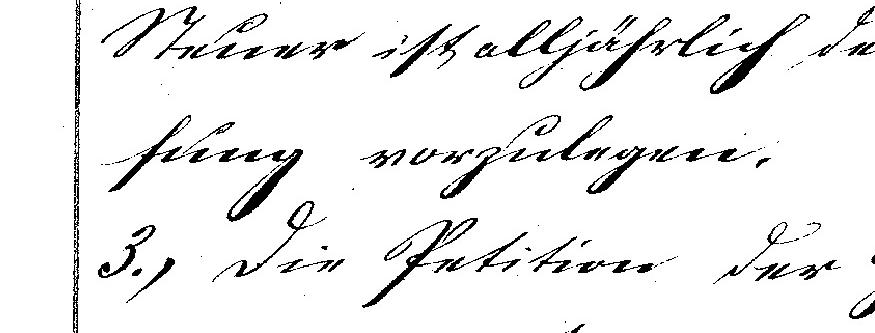 Steuer ist alljährlich de
fung vorzulegen.
3., Die Petition der